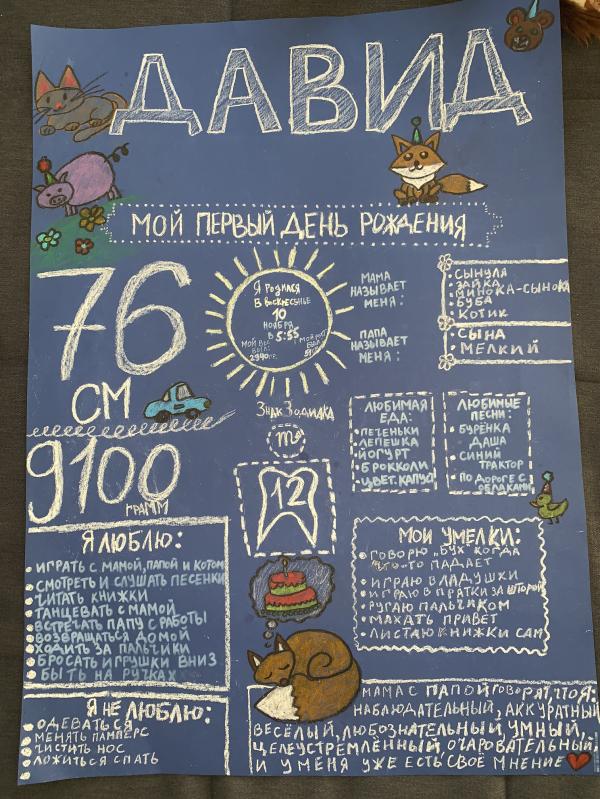 ДАВИД
МОЙ ПЕРВЫЙ ДЕНЬ РОЖДЕНИЯ
76
СМ
9100
ГРАММ
Я РОДИЛСЯ
В ВОСКРЕСЕНЬЕ
10
НОЯБРЯ
В 5:55
МОЙ ВЕС
БЫЛ:
2940гр.
МОЙ РОСТ
БЫЛ:
МАМА
НАЗЫВАЕТ
МЕНЯ:
• СЫНУЛЯ
• ЗАЙКА
• СЫНОКА-СЫНОКА
• БУБА
• КОТИК
ПАПА
НАЗЫВАЕТ
МЕНЯ:
• СЫНА
• МЕЛКИЙ
ЗНАК ЗОДИАКА
♏
12
ЛЮБИМАЯ
ЕДА:
• ПЕЧЕНЬКИ
• ЛЕПЕШКА
• ЙОГУРТ
• БРОККОЛИ
• ЦВЕТ. КАПУСТ
ЛЮБИМЫЕ
ПЕСНИ:
• БУРЁНКА
ДАША
• СИНИЙ
ТРАКТОР
• ПО ДОРОГЕ С
ОБЛАКАМИ
Я ЛЮБЛЮ:
• ИГРАТЬ С МАМОЙ, ПАПОЙ И КОТОМ
• СМОТРЕТЬ И СЛУШАТЬ ПЕСЕНКИ
• ЧИТАТЬ КНИЖКИ
• ТАНЦЕВАТЬ С МАМОЙ
• ВСТРЕЧАТЬ ПАПУ С РАБОТЫ
• ВОЗВРАЩАТЬСЯ ДОМОЙ
• ХОДИТЬ ЗА ПАЛЬЧИКИ
• БРОСАТЬ ИГРУШКИ ВНИЗ
• БЫТЬ НА РУЧКАХ
Я НЕ ЛЮБЛЮ:
• ОДЕВАТЬСЯ
• МЕНЯТЬ ПАМПЕРС
• ЧИСТИТЬ НОС
• ЛОЖИТЬСЯ СПАТЬ
МОИ УМЕЛКИ:
• ГОВОРЮ „БУХ" КОГДА
ЧТО-ТО ПАДАЕТ
• ИГРАЮ В ЛАДУШКИ
• ИГРАЮ В ПРЯТКИ ЗА ШТОРОЙ
• РУГАЮ ПАЛЬЧИКОМ
• МАХАТЬ ПРИВЕТ
• ЛИСТАЮ КНИЖКИ САМ
МАМА С ПАПОЙ ГОВОРЯТ, ЧТО Я:
НАБЛЮДАТЕЛЬНЫЙ, АККУРАТНЫЙ
ВЕСЁЛЫЙ, ЛЮБОЗНАТЕЛЬНЫЙ, УМНЫЙ,
ЦЕЛЕУСТРЕМЛЁННЫЙ, ОЧАРОВАТЕЛЬНЫЙ,
И У МЕНЯ УЖЕ ЕСТЬ СВОЁ МНЕНИЕ